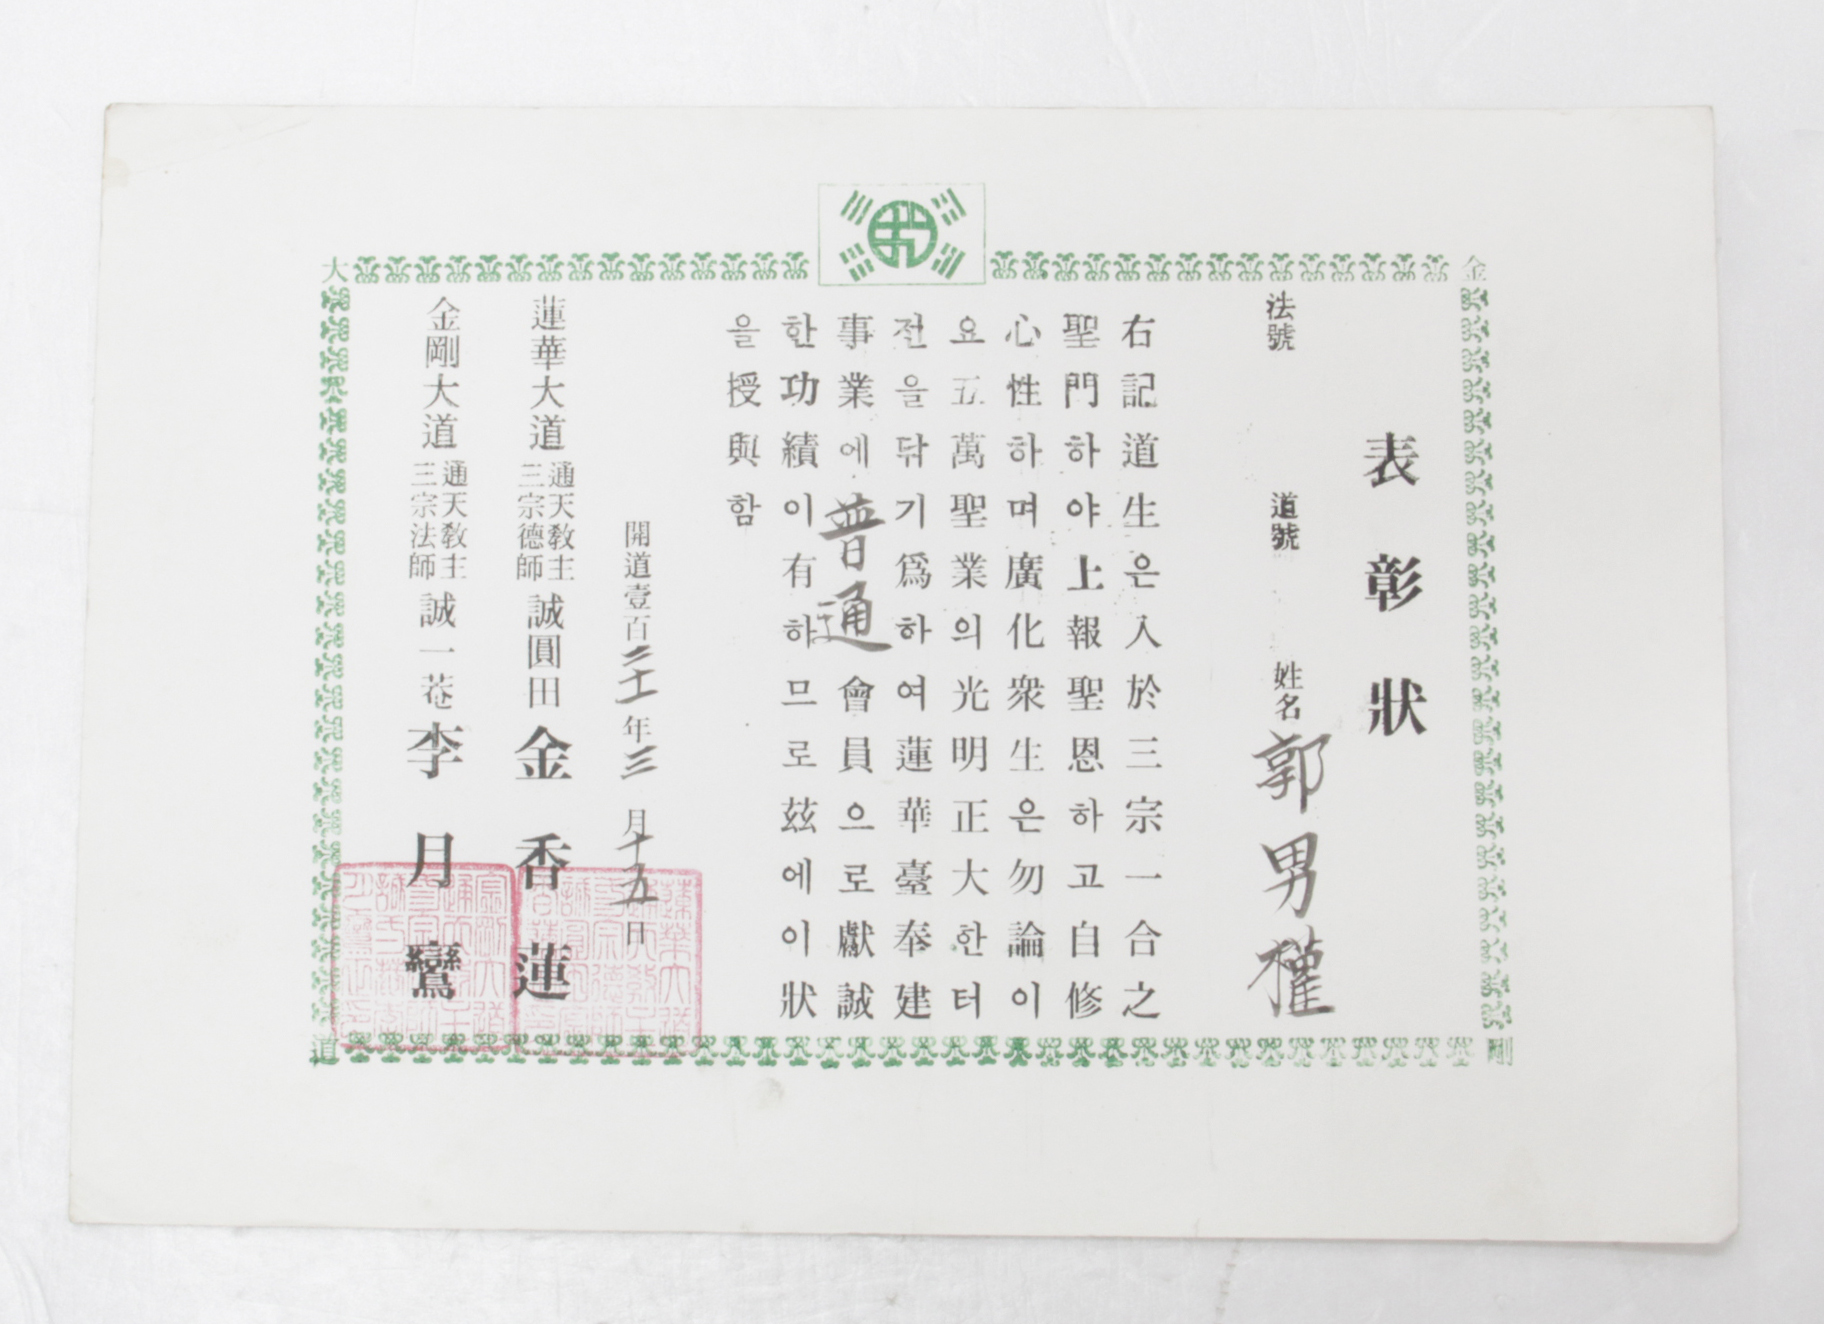 表彰狀
法號 道號 姓名 郭男權
右記道生은入於三宗一合之
聖門하야上報聖恩하고自修
心性하며廣化衆生은勿論이
요五萬聖業의光明正大한터
전을닦기爲하여蓮華臺奉建
事業에普通會員으로獻誠
한功績이有하므로玆에이狀
을授與함
開道壹百二十一年三月十五日
蓮華大道 通天敎主 三宗德師 誠圓田 金香蓮
金剛大道 通天敎主 三宗法師 誠一菴 李月鸞
金剛大道